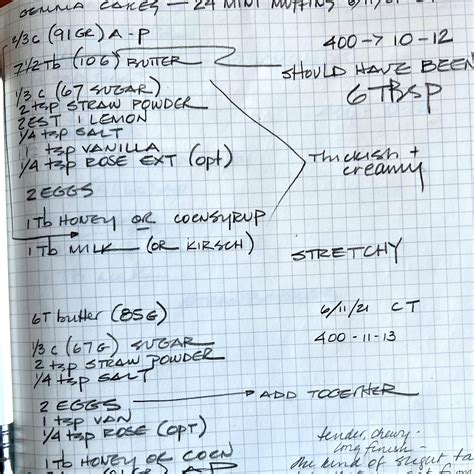 GEMMA CAKES — 24 MINI MUFFINS 6/11/21
2/3 c (91 GR) A-P
400 → 10-12
7 1/2 Tb (106) BUTTER
SHOULD HAVE BEEN
6 TBSP
1/3 c (67 SUGAR)
2 tsp STRAW POWDER
ZEST 1 LEMON
1/4 tsp SALT
1 tsp VANILLA
1/4 tsp ROSE EXT (opt)
Thickish +
creamy
2 EGGS
1 Tb HONEY OR CORNSYRUP
1 Tb MILK (OR KIRSCH)
STRETCHY
6T butter (85G)
6/11/21 CT
1/3 c (67G) SUGAR
400 - 11-13
2 tsp STRAW POWDER
1/4 tsp SALT
2 EGGS → ADD TOGETHER
1 tsp VAN
1/4 tsp ROSE (OPT)
tender, chewy -
long finish -
1 Tb HONEY OR CORN
the kind of
AP